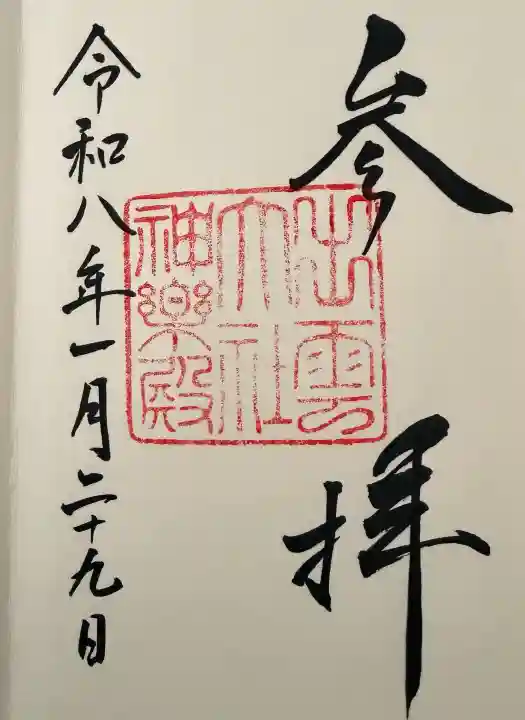 参拝
出雲
大社
神楽殿
令和八年一月二十九日